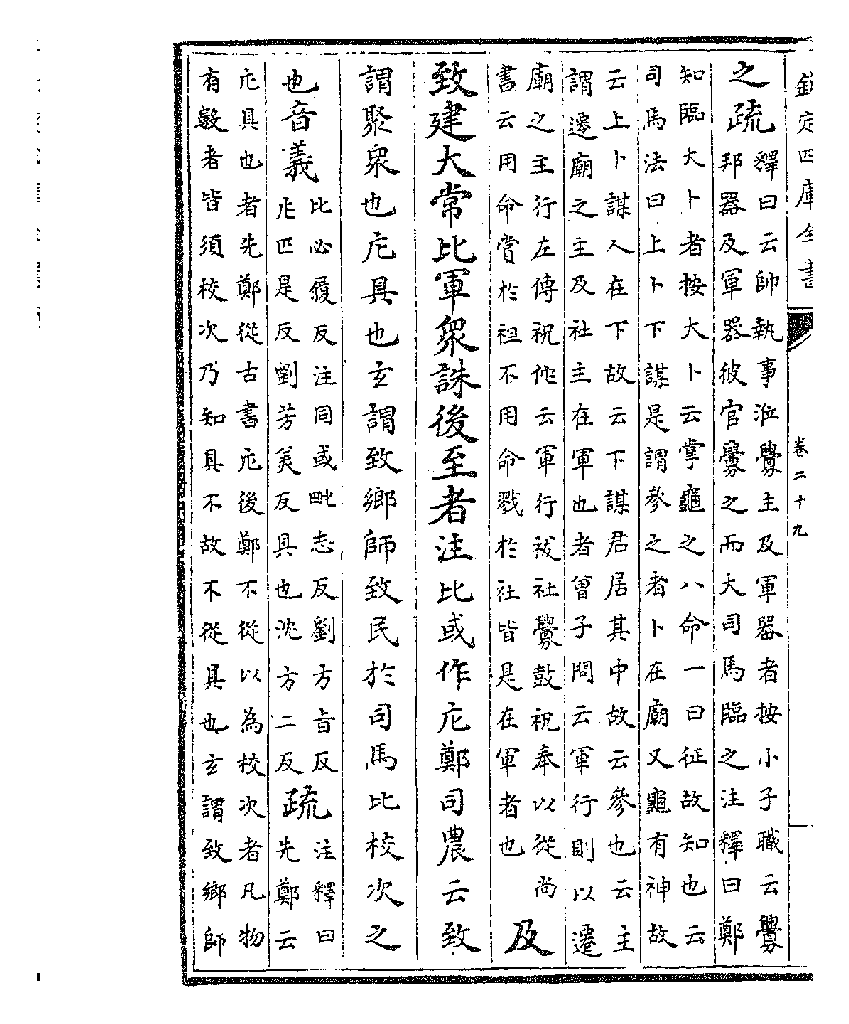 欽定四庫全書
卷二十九
之疏釋曰云帥執事涖釁主及軍器者按小子職云釁
邦器及軍器彼官釁之而大司馬臨之注釋曰鄭
知臨大卜者按大卜云掌龜之八命一曰征故知也云
司馬法曰上卜下謀是謂參之者卜在廟又龜有神故
云上卜謀人在下故云下謀君居其中故云參也云主
謂遷廟之主及社主在軍也者曾子問云軍行則以遷
廟之主行左傳祝佗云軍行祓社釁鼓祝奉以從尚
書云用命賞於祖不用命戮於社皆是在軍者也及
致建大常比軍衆誅後至者注比或作庀鄭司農云致
謂聚衆也庀具也玄謂致鄉師致民於司馬比校次之
也音義比必履反注同或毗志反劉方旨反
庀匹是反劉芳美反具也沈方二反疏注釋曰
先鄭云
庀具也者先鄭從古書庀後鄭不從以為校次者凡物
有數者皆須校次乃知具不故不從具也玄謂致鄉師